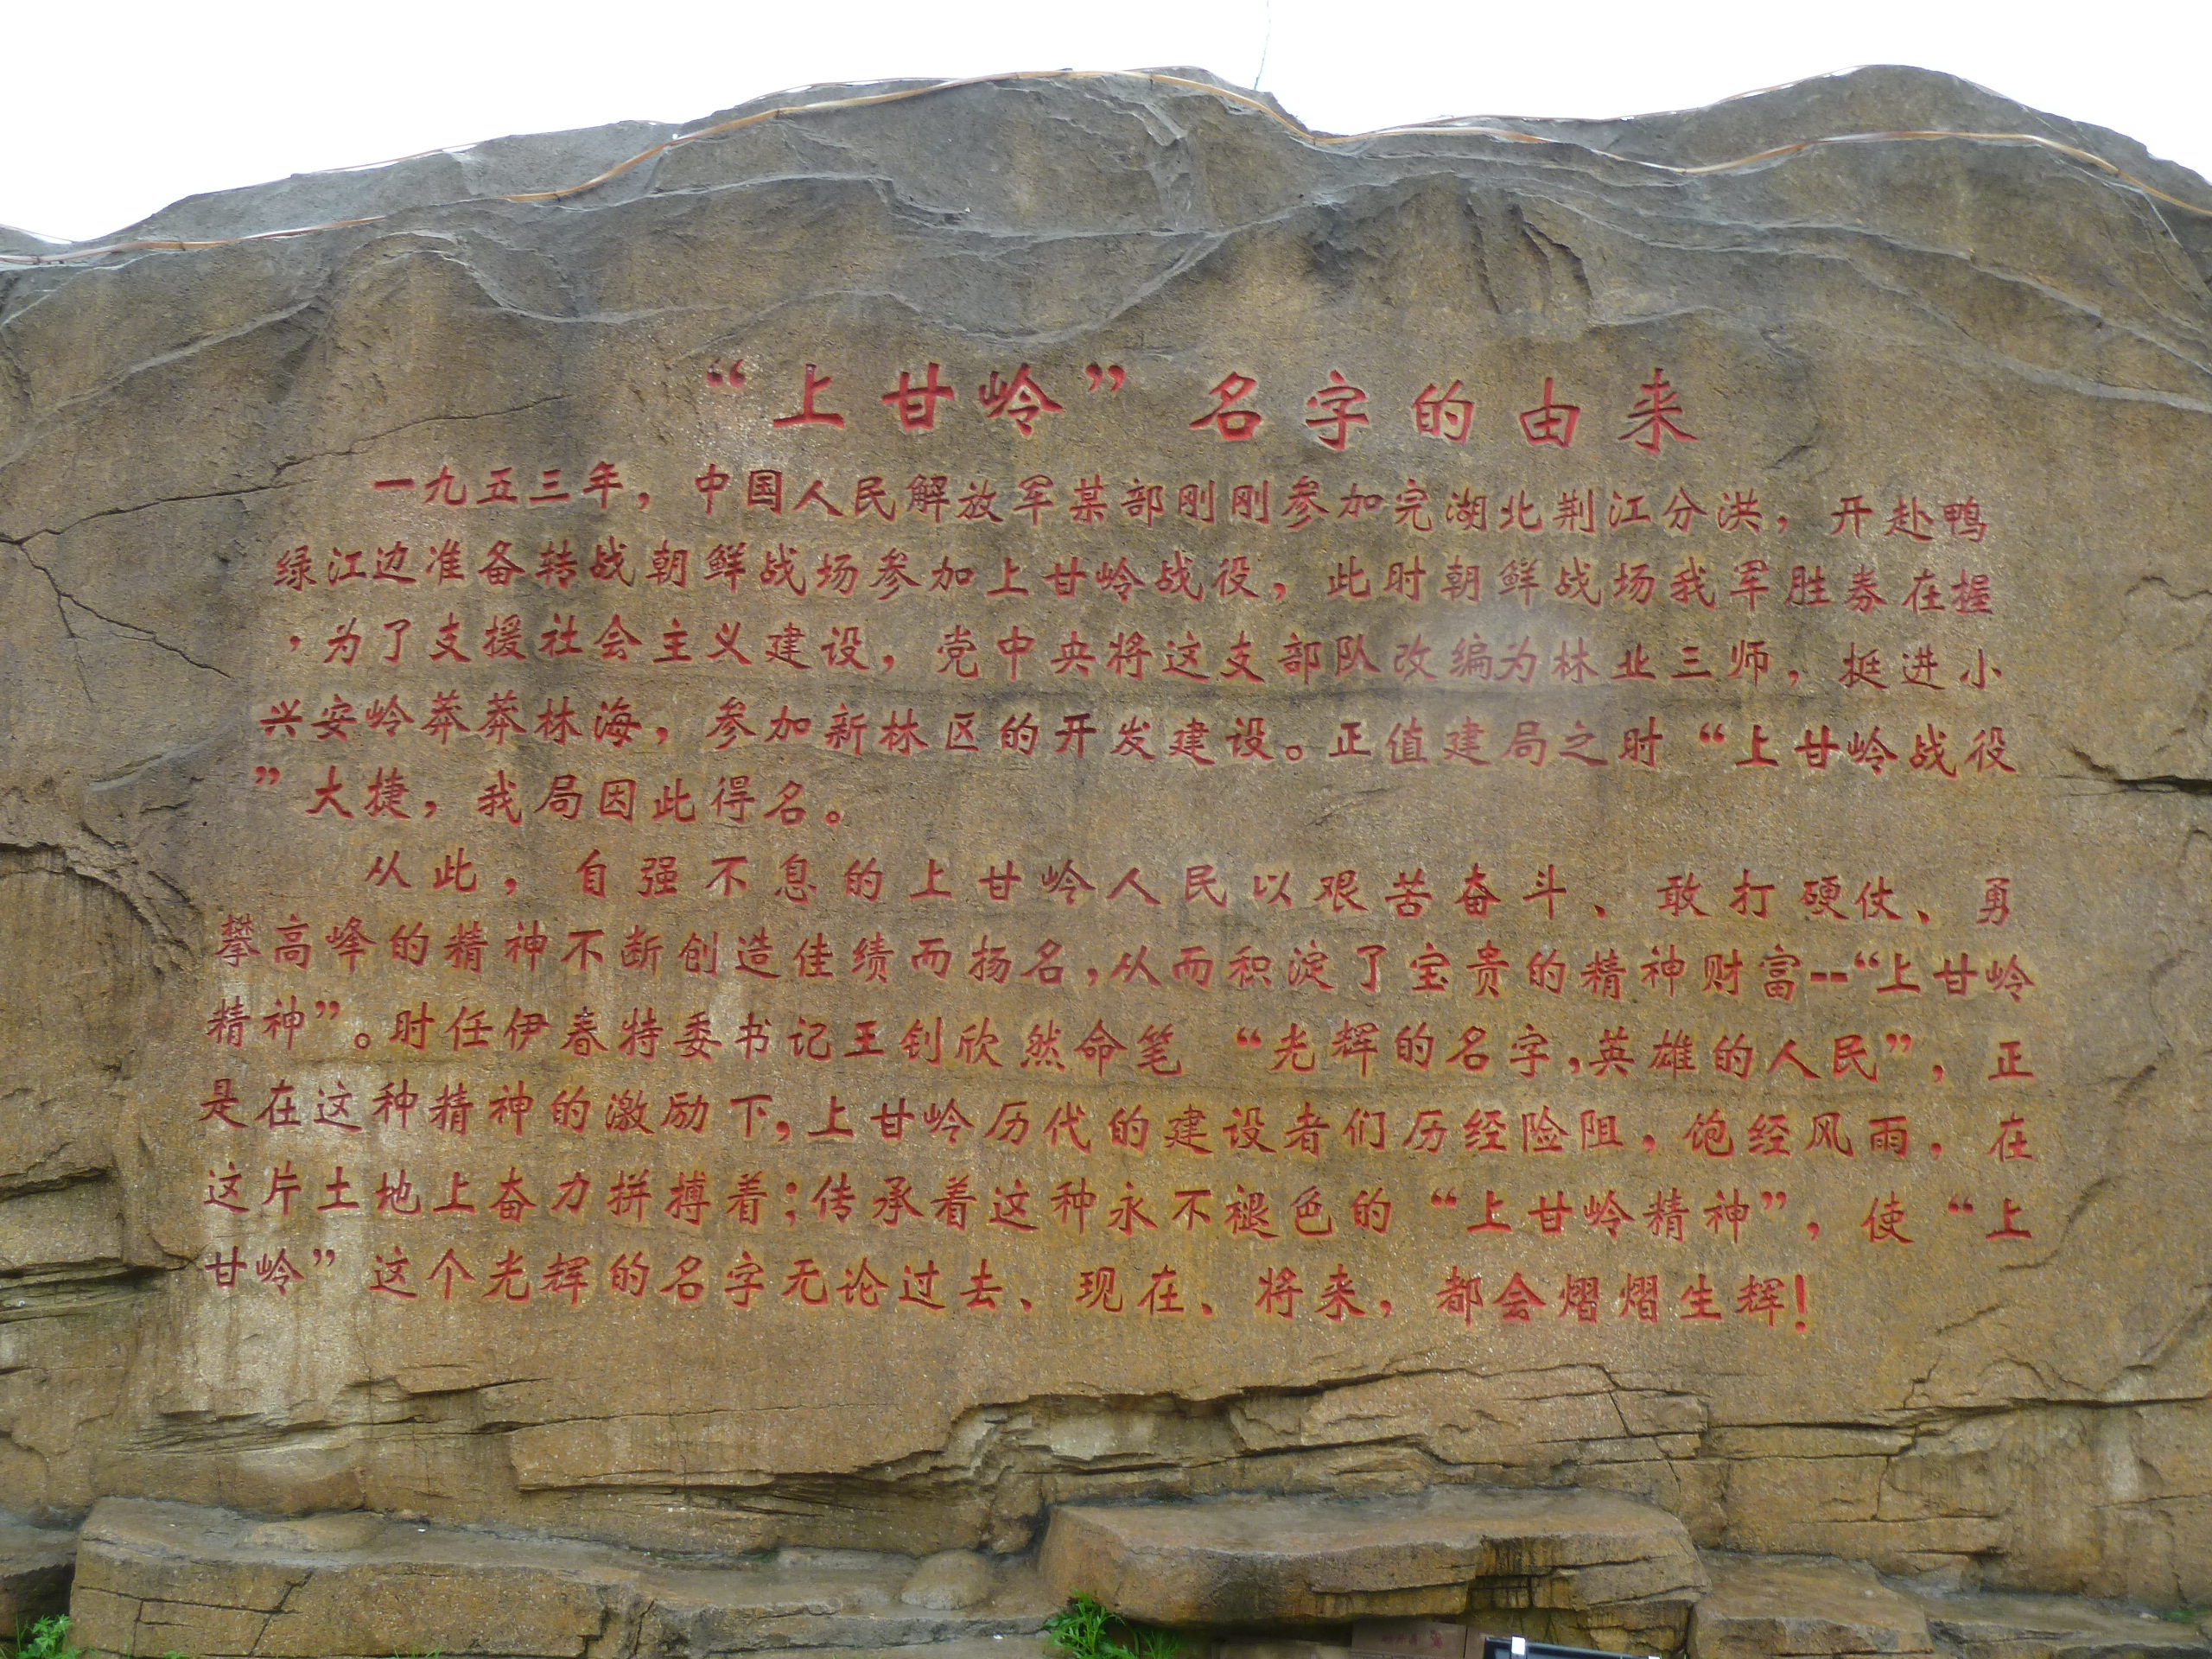 “上甘岭”名字的由来
一九五三年，中国人民解放军某部刚刚参加完湖北荆江分洪，开赴鸭
绿江边准备转战朝鲜战场参加上甘岭战役，此时朝鲜战场我军胜券在握
，为了支援社会主义建设，党中央将这支部队改编为林业三师，挺进小
兴安岭莽莽林海，参加新林区的开发建设。正值建局之时“上甘岭战役
”大捷，我局因此得名。
从此，自强不息的上甘岭人民以艰苦奋斗、敢打硬仗、勇
攀高峰的精神不断创造佳绩而扬名，从而积淀了宝贵的精神财富--“上甘岭
精神”。时任伊春特委书记王钊欣然命笔“光辉的名字，英雄的人民”，正
是在这种精神的激励下，上甘岭历代的建设者们历经险阻，饱经风雨，在
这片土地上奋力拼搏着；传承着这种永不褪色的“上甘岭精神”，使“上
甘岭”这个光辉的名字无论过去、现在、将来，都会熠熠生辉！